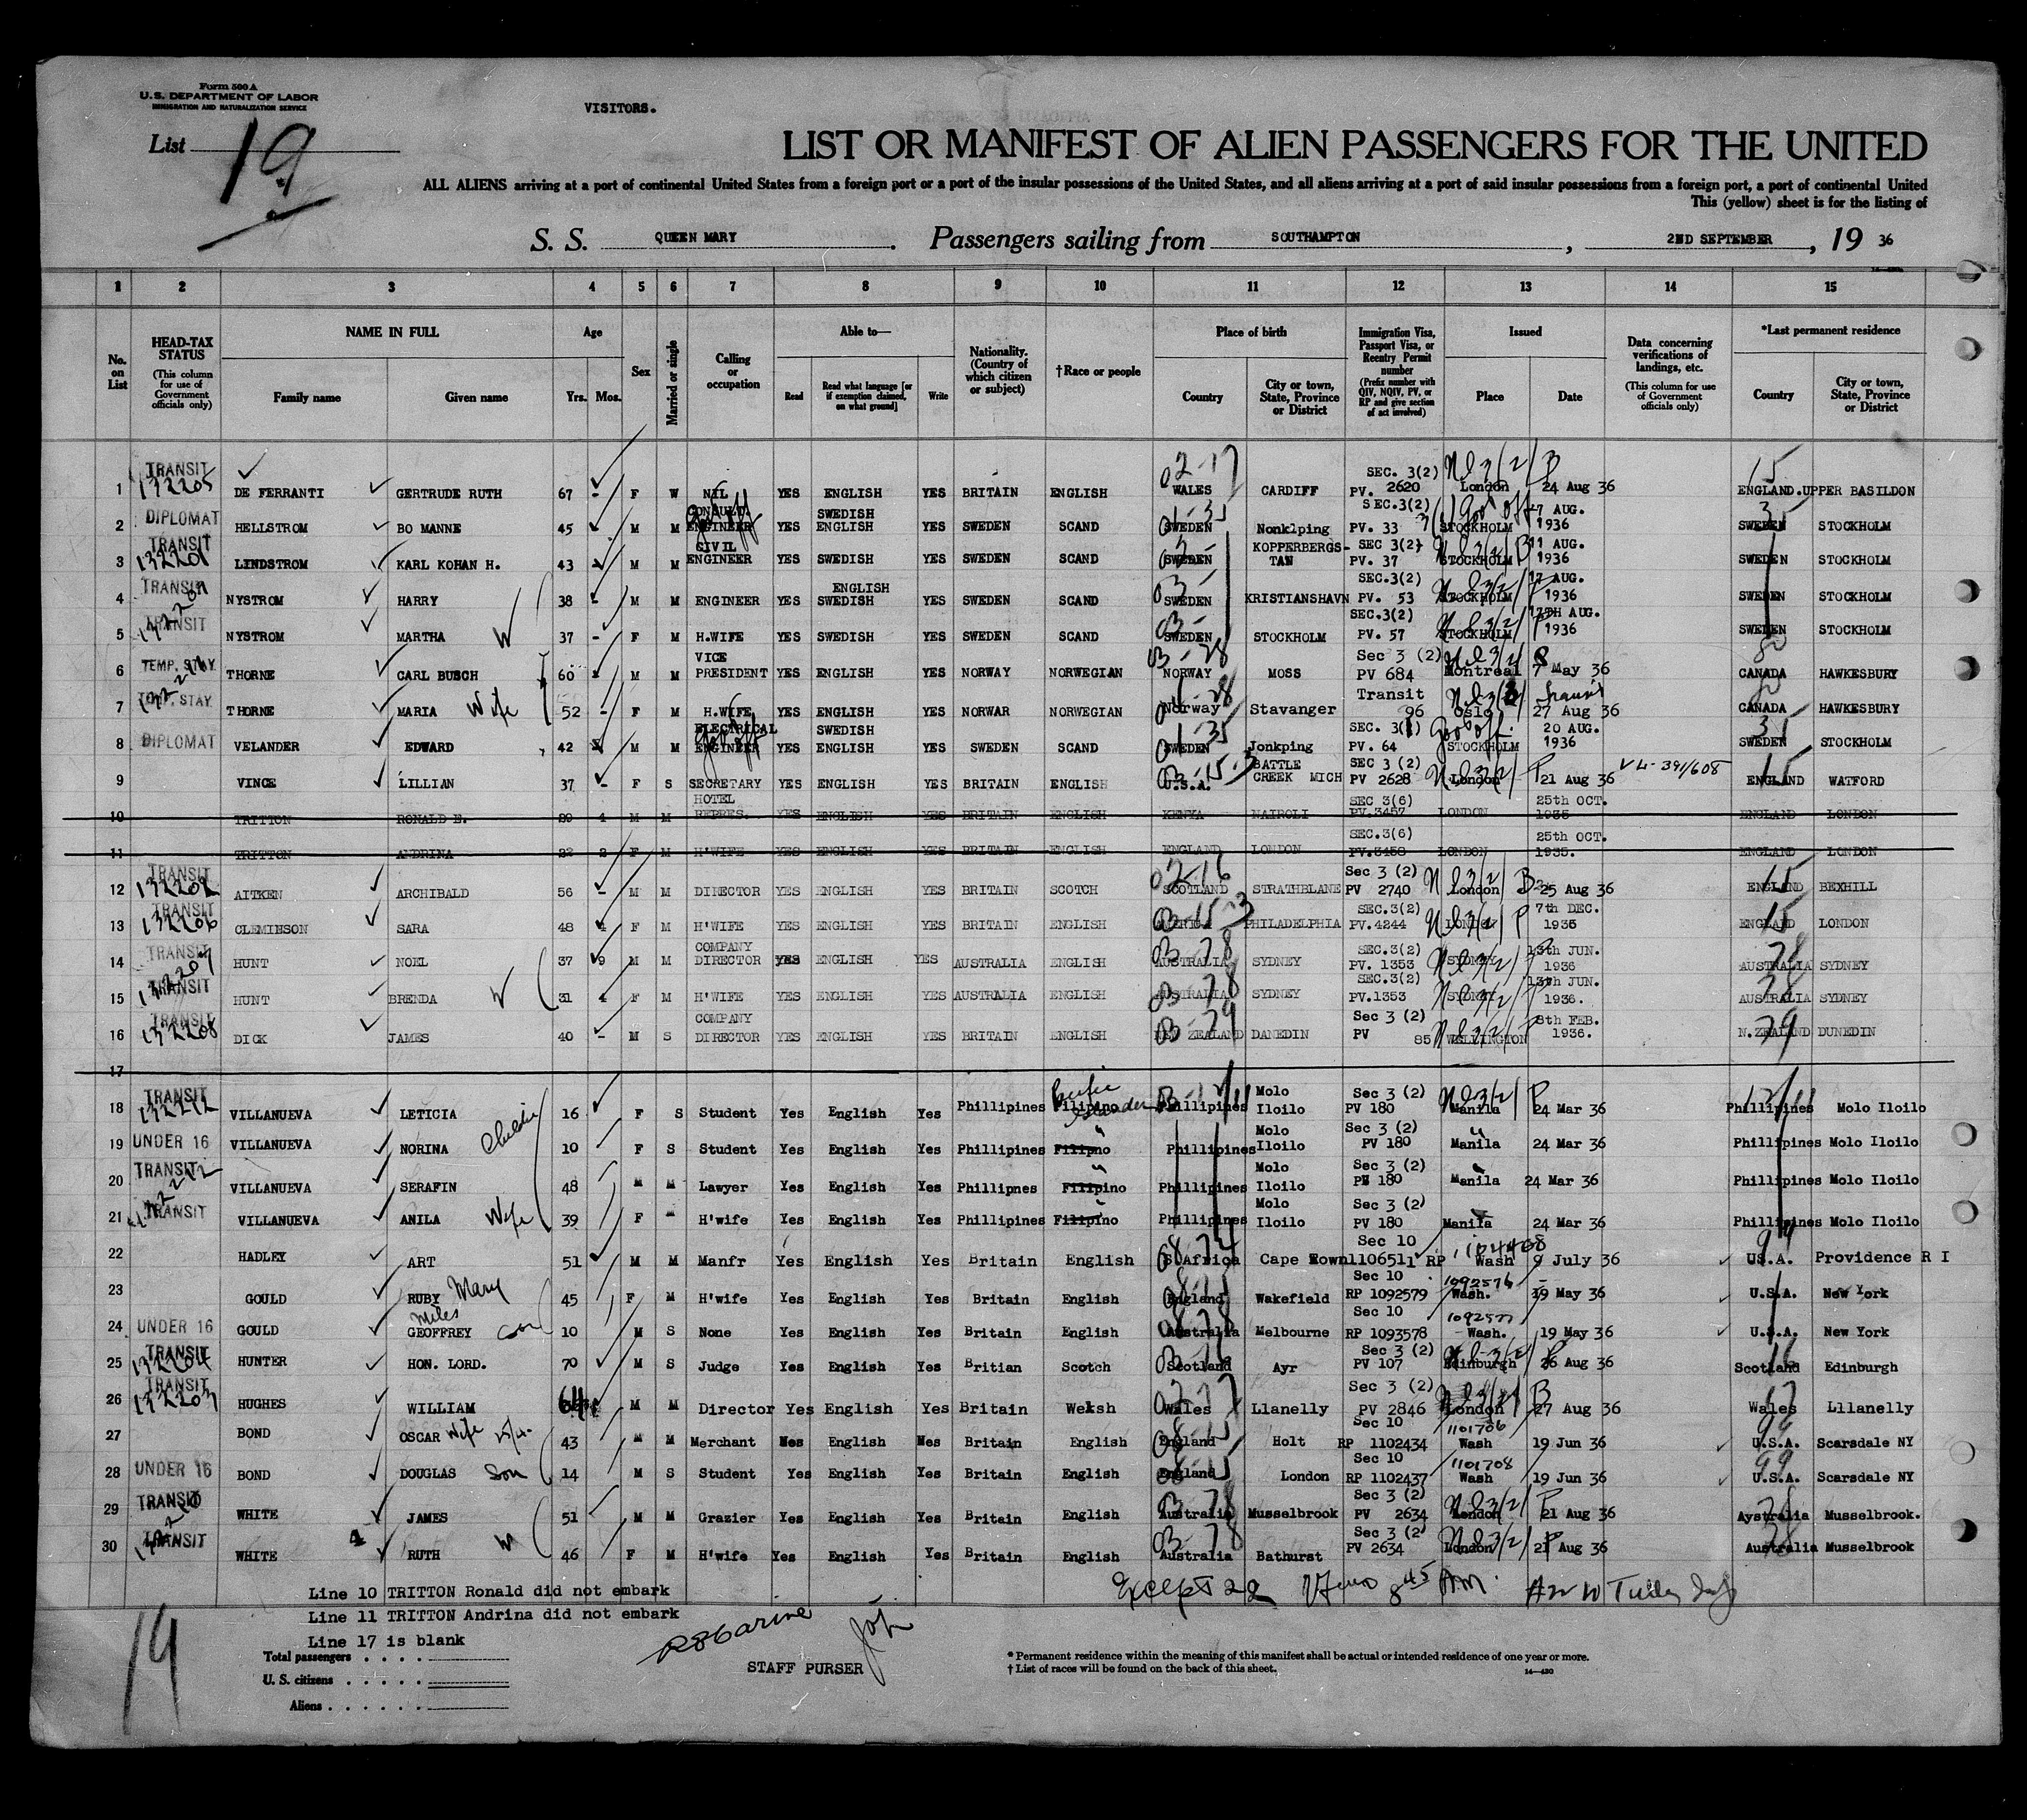 Form 500 A
U.S. DEPARTMENT OF LABOR
IMMIGRATION AND NATURALIZATION SERVICE
VISITORS.
List 19
LIST OR MANIFEST OF ALIEN PASSENGERS FOR THE UNITED
ALL ALIENS arriving at a port of continental United States from a foreign port or a port of the insular possessions of the United States, and all aliens arriving at a port of said insular possessions from a foreign port, a port of continental United
This (yellow) sheet is for the listing of
S. S. QUEEN MARY . Passengers sailing from SOUTHAMPTON , 2ND SEPTEMBER , 19 36
1 2 3 4 5 6 7 8 9 10 11 12 13 14 15
No. on List
HEAD-TAX STATUS (This column for use of Government officials only)
NAME IN FULL Family name Given name
Age Yrs. Mos.
Sex
Married or single
Calling or occupation
Able to— Read Read what language [or if exemption claimed, on what ground] Write
Nationality. (Country of which citizen or subject)
†Race or people
Place of birth Country City or town, State, Province or District
Immigration Visa, Passport Visa, or Reentry Permit number (Prefix number with QIV, NQIV, PV, or RP and give section of act involved)
Issued Place Date
Data concerning verifications of landings, etc. (This column for use of Government officials only)
*Last permanent residence Country City or town, State, Province or District
1 TRANSIT 132205 DE FERRANTI GERTRUDE RUTH 67 - F W NIL YES ENGLISH YES BRITAIN ENGLISH 02-17 WALES CARDIFF SEC. 3(2) PV. 2620 London 24 Aug 36 15 ENGLAND. UPPER BASILDON
2 DIPLOMAT HELLSTROM BO MANNE 45 M M CONSULT. ENGINEER YES SWEDISH ENGLISH YES SWEDEN SCAND SWEDEN Nonklping SEC.3(2) PV. 33 STOCKHOLM 7 AUG. 1936 35 SWEDEN STOCKHOLM
3 TRANSIT 132201 LINDSTROM KARL KOHAN H. 43 M M CIVIL ENGINEER YES SWEDISH YES SWEDEN SCAND SWEDEN KOPPERBERGS-TAN SEC 3(2) PV. 37 STOCKHOLM 11 AUG. 1936 SWEDEN STOCKHOLM
4 TRANSIT NYSTROM HARRY 38 - M M ENGINEER YES ENGLISH SWEDISH YES SWEDEN SCAND SWEDEN KRISTIANSHAVN SEC.3(2) PV. 53 STOCKHOLM 17 AUG. 1936 SWEDEN STOCKHOLM
5 TRANSIT NYSTROM MARTHA W 37 - F M H.WIFE YES SWEDISH YES SWEDEN SCAND SWEDEN STOCKHOLM SEC.3(2) PV. 57 STOCKHOLM 17TH AUG. 1936 SWEDEN STOCKHOLM
6 TEMP. STAY THORNE CARL BUSCH 60 M M VICE PRESIDENT YES ENGLISH YES NORWAY NORWEGIAN NORWAY MOSS Sec 3 (2) PV 684 Montreal 7 May 36 80 CANADA HAWKESBURY
7 TEMP. STAY THORNE MARIA Wife 52 - F M H.WIFE YES ENGLISH YES NORWAR NORWEGIAN Norway Stavanger Transit 96 Oslo Transit 27 Aug 36 80 CANADA HAWKESBURY
8 DIPLOMAT VELANDER EDWARD 42 M M ELECTRICAL ENGINEER YES SWEDISH ENGLISH YES SWEDEN SCAND 01-35 SWEDEN Jonkping SEC. 3(1) PV. 64 Gov off. STOCKHOLM 20 AUG. 1936 35 SWEDEN STOCKHOLM
9 VINCE LILLIAN 37 - F S SECRETARY YES ENGLISH YES BRITAIN ENGLISH 03-15-3 U.S.A. BATTLE CREEK MICH SEC 3 (2) PV 2628 London 21 Aug 36 VL-391/608 15 ENGLAND WATFORD
10 TRITTON RONALD E. 29 4 M M HOTEL REPRES. YES ENGLISH YES BRITAIN ENGLISH KENYA NAIROLI SEC 3(6) PV.3457 LONDON 25th OCT. 1935 ENGLAND LONDON
11 TRITTON ANDRINA 22 2 F M H'WIFE YES ENGLISH YES BRITAIN ENGLISH ENGLAND LONDON SEC.3(6) PV.3458 LONDON 25th OCT. 1935. ENGLAND LONDON
12 TRANSIT 132202 AITKEN ARCHIBALD 56 - M M DIRECTOR YES ENGLISH YES BRITAIN SCOTCH 02-16 SCOTLAND STRATHBLANE Sec 3 (2) PV 2740 London 25 Aug 36 15 ENGLAND BEXHILL
13 TRANSIT 132206 CLEMINSON SARA 48 4 F M H'WIFE YES ENGLISH YES BRITAIN ENGLISH 03-15-3 AMERICA PHILADELPHIA SEC.3(2) PV.4244 LONDON 7th DEC. 1935 15 ENGLAND LONDON
14 TRANSIT 132207 HUNT NOEL 37 9 M M COMPANY DIRECTOR YES ENGLISH YES AUSTRALIA ENGLISH 03-78 AUSTRALIA SYDNEY SEC.3(2) PV. 1353 SYDNEY 13th JUN. 1936 78 AUSTRALIA SYDNEY
15 TRANSIT HUNT BRENDA W 31 4 F M H'WIFE YES ENGLISH YES AUSTRALIA ENGLISH 03-78 AUSTRALIA SYDNEY SEC.3(2) PV.1353 SYDNEY 13th JUN. 1936. 78 AUSTRALIA SYDNEY
16 TRANSIT 132208 DICK JAMES 40 - M S COMPANY DIRECTOR YES ENGLISH YES BRITAIN ENGLISH 03-79 NEW ZEALAND DANEDIN Sec 3 (2) PV 85 WELLINGTON 8th FEB. 1936. 79 N.ZEALAND DUNEDIN
17
18 TRANSIT 132212 VILLANUEVA LETICIA 16 F S Student Yes English Yes Phillipines Filipino Phillipines Molo Iloilo Sec 3 (2) PV 180 Manila 24 Mar 36 Phillipines Molo Iloilo
19 UNDER 16 VILLANUEVA NORINA Children 10 F S Student Yes English Yes Phillipines Filipno " Phillipines Molo Iloilo Sec 3 (2) PV 180 Manila 24 Mar 36 Phillipines Molo Iloilo
20 TRANSIT VILLANUEVA SERAFIN 48 M M Lawyer Yes English Yes Phillipnes Filipino " Phillipines Molo Iloilo Sec 3 (2) PV 180 Manila 24 Mar 36 Phillipines Molo Iloilo
21 TRANSIT VILLANUEVA ANILA Wife 39 F M H'wife Yes English Yes Phillipines Filipino Phillipines Molo Iloilo Sec 3 (2) PV 180 Manila 24 Mar 36 Phillipines Molo Iloilo
22 HADLEY ART 51 M M Manfr Yes English Yes Britain English S Africa Cape Town Sec 10 1106511 RP 1104408 Wash 9 July 36 U.S.A. Providence R I
23 GOULD RUBY Mary 45 F M H'wife Yes English Yes Britain English England Wakefield Sec 10 RP 1092579 1092576 Wash. 19 May 36 U.S.A. New York
24 UNDER 16 GOULD Miles GEOFFREY son 10 M S None Yes English Yes Britain English Australia Melbourne Sec 10 RP 1093578 1092577 Wash. 19 May 36 U.S.A. New York
25 TRANSIT 132204 HUNTER HON. LORD. 70 M S Judge Yes English Yes Britian Scotch Scotland Ayr Sec 3 (2) PV 107 Edinburgh 26 Aug 36 16 Scotland Edinburgh
26 TRANSIT 132203 HUGHES WILLIAM 64 M M Director Yes English Yes Britain Welsh 02-17 Wales Llanelly Sec 3 (2) PV 2846 London 27 Aug 36 17 Wales Lllanelly
27 BOND OSCAR Wife 43 M M Merchant Yes English Yes Britain English England Holt Sec 10 RP 1102434 1101706 Wash 19 Jun 36 99 U.S.A. Scarsdale NY
28 UNDER 16 BOND DOUGLAS Son 14 M S Student Yes English Yes Britain English England London Sec 10 RP 1102437 1101708 Wash 19 Jun 36 99 U.S.A. Scarsdale NY
29 TRANSIT WHITE JAMES 51 M M Grazier Yes English Yes Britain English 03-78 Australia Musselbrook Sec 3 (2) PV 2634 London 21 Aug 36 78 Aystralia Musselbrook.
30 TRANSIT WHITE RUTH W 46 F M H'wife Yes English Yes Britain English 03-78 Australia Bathurst Sec 3 (2) PV 2634 London 21 Aug 36 78 Australia Musselbrook
Except 22 8 45 AM.
Line 10 TRITTON Ronald did not embark
Line 11 TRITTON Andrina did not embark
Line 17 is blank
19
Total passengers
U. S. citizens
Aliens
STAFF PURSER
* Permanent residence within the meaning of this manifest shall be actual or intended residence of one year or more.
† List of races will be found on the back of this sheet.
14—430